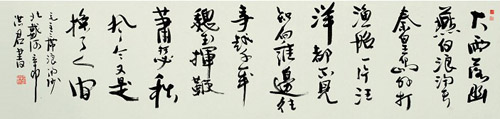 大雨落幽
燕白浪滔天
秦皇島外打
漁船一片汪
洋都不見
知向誰邊往
事越千年
魏武揮鞭
蕭瑟秋
風今又是
換了人间
毛主席浪淘沙
北戴河辛卯
書